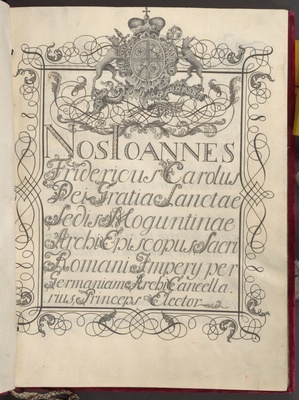 NOS IOANNES
Fridericus Carolus
Dei Gratia Sanctae
Sedis Moguntinae
ArchiEpiscopus, Sacri
Romani Impery per
Germaniam ArchiCancella.
rius, Princeps Elector